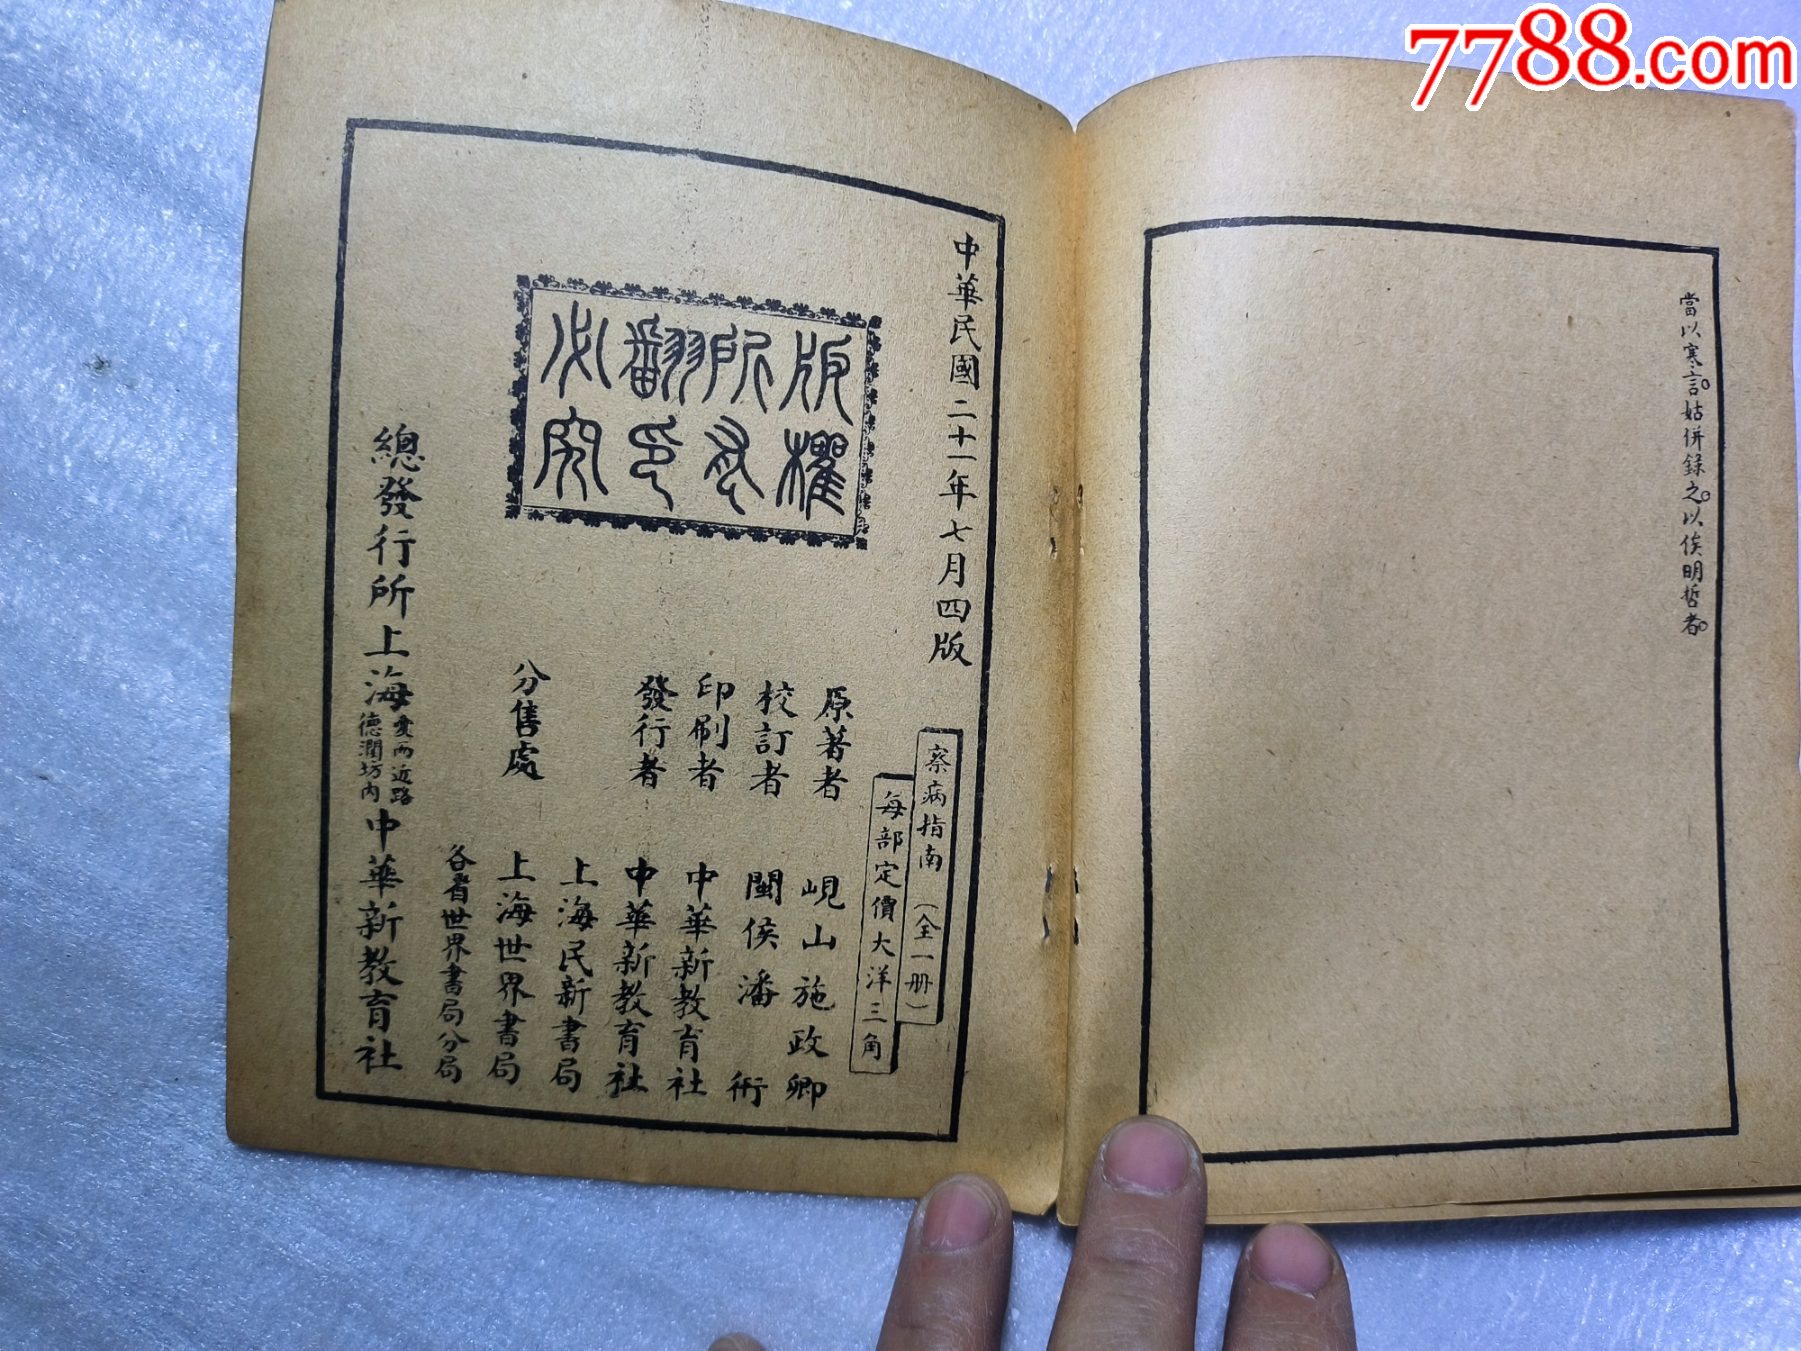 7788.com
當以寒言。姑併錄之。以俟明哲者。
中華民國二十一年七月四版
察病指南(全一册)
每部定價大洋三角
版權
所有
翻印
必究
原著者 峴山施政卿
校訂者 閩侯潘術
印刷者 中華新教育社
發行者 中華新教育社
分售處 上海民新書局
上海世界書局
各省世界書局分局
總發行所上海愛而近路德潤坊內中華新教育社